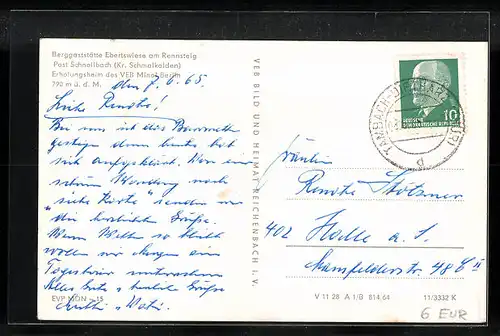 Berggaststätte Ebertswiese am Rennsteig
Post Schnellbach (Kr. Schmalkalden)
Erholungsheim des VEB Minol Berlin
790 m ü. d. M.
den 7.6.65.
Liebe Renate!
Bei uns ist das Barometer
gestiegen denn heute hat
sich aufgeklärt. Von einer
schönen Wanderung nach
senden wir
dir herzliche Grüße.
Wenn Wetter so bleibt
wollen wir Morgen eine
Tagestour unternehmen
Alles Gute u. herzliche Grüße
Mutti u. Vati.
EVP MDN -,15
VEB BILD UND HEIMAT REICHENBACH I. V.
10
DEUTSCHE
DEMOKRATISCHE REPUBLIK
TAMBACH-DIETHARZ
d
Fräulein
Renate Stötzner
402 Halle a. S.
Mansfelderstr. 48 C II
V 11 28 A 1/B 814/64
11/3332 K
6 EUR